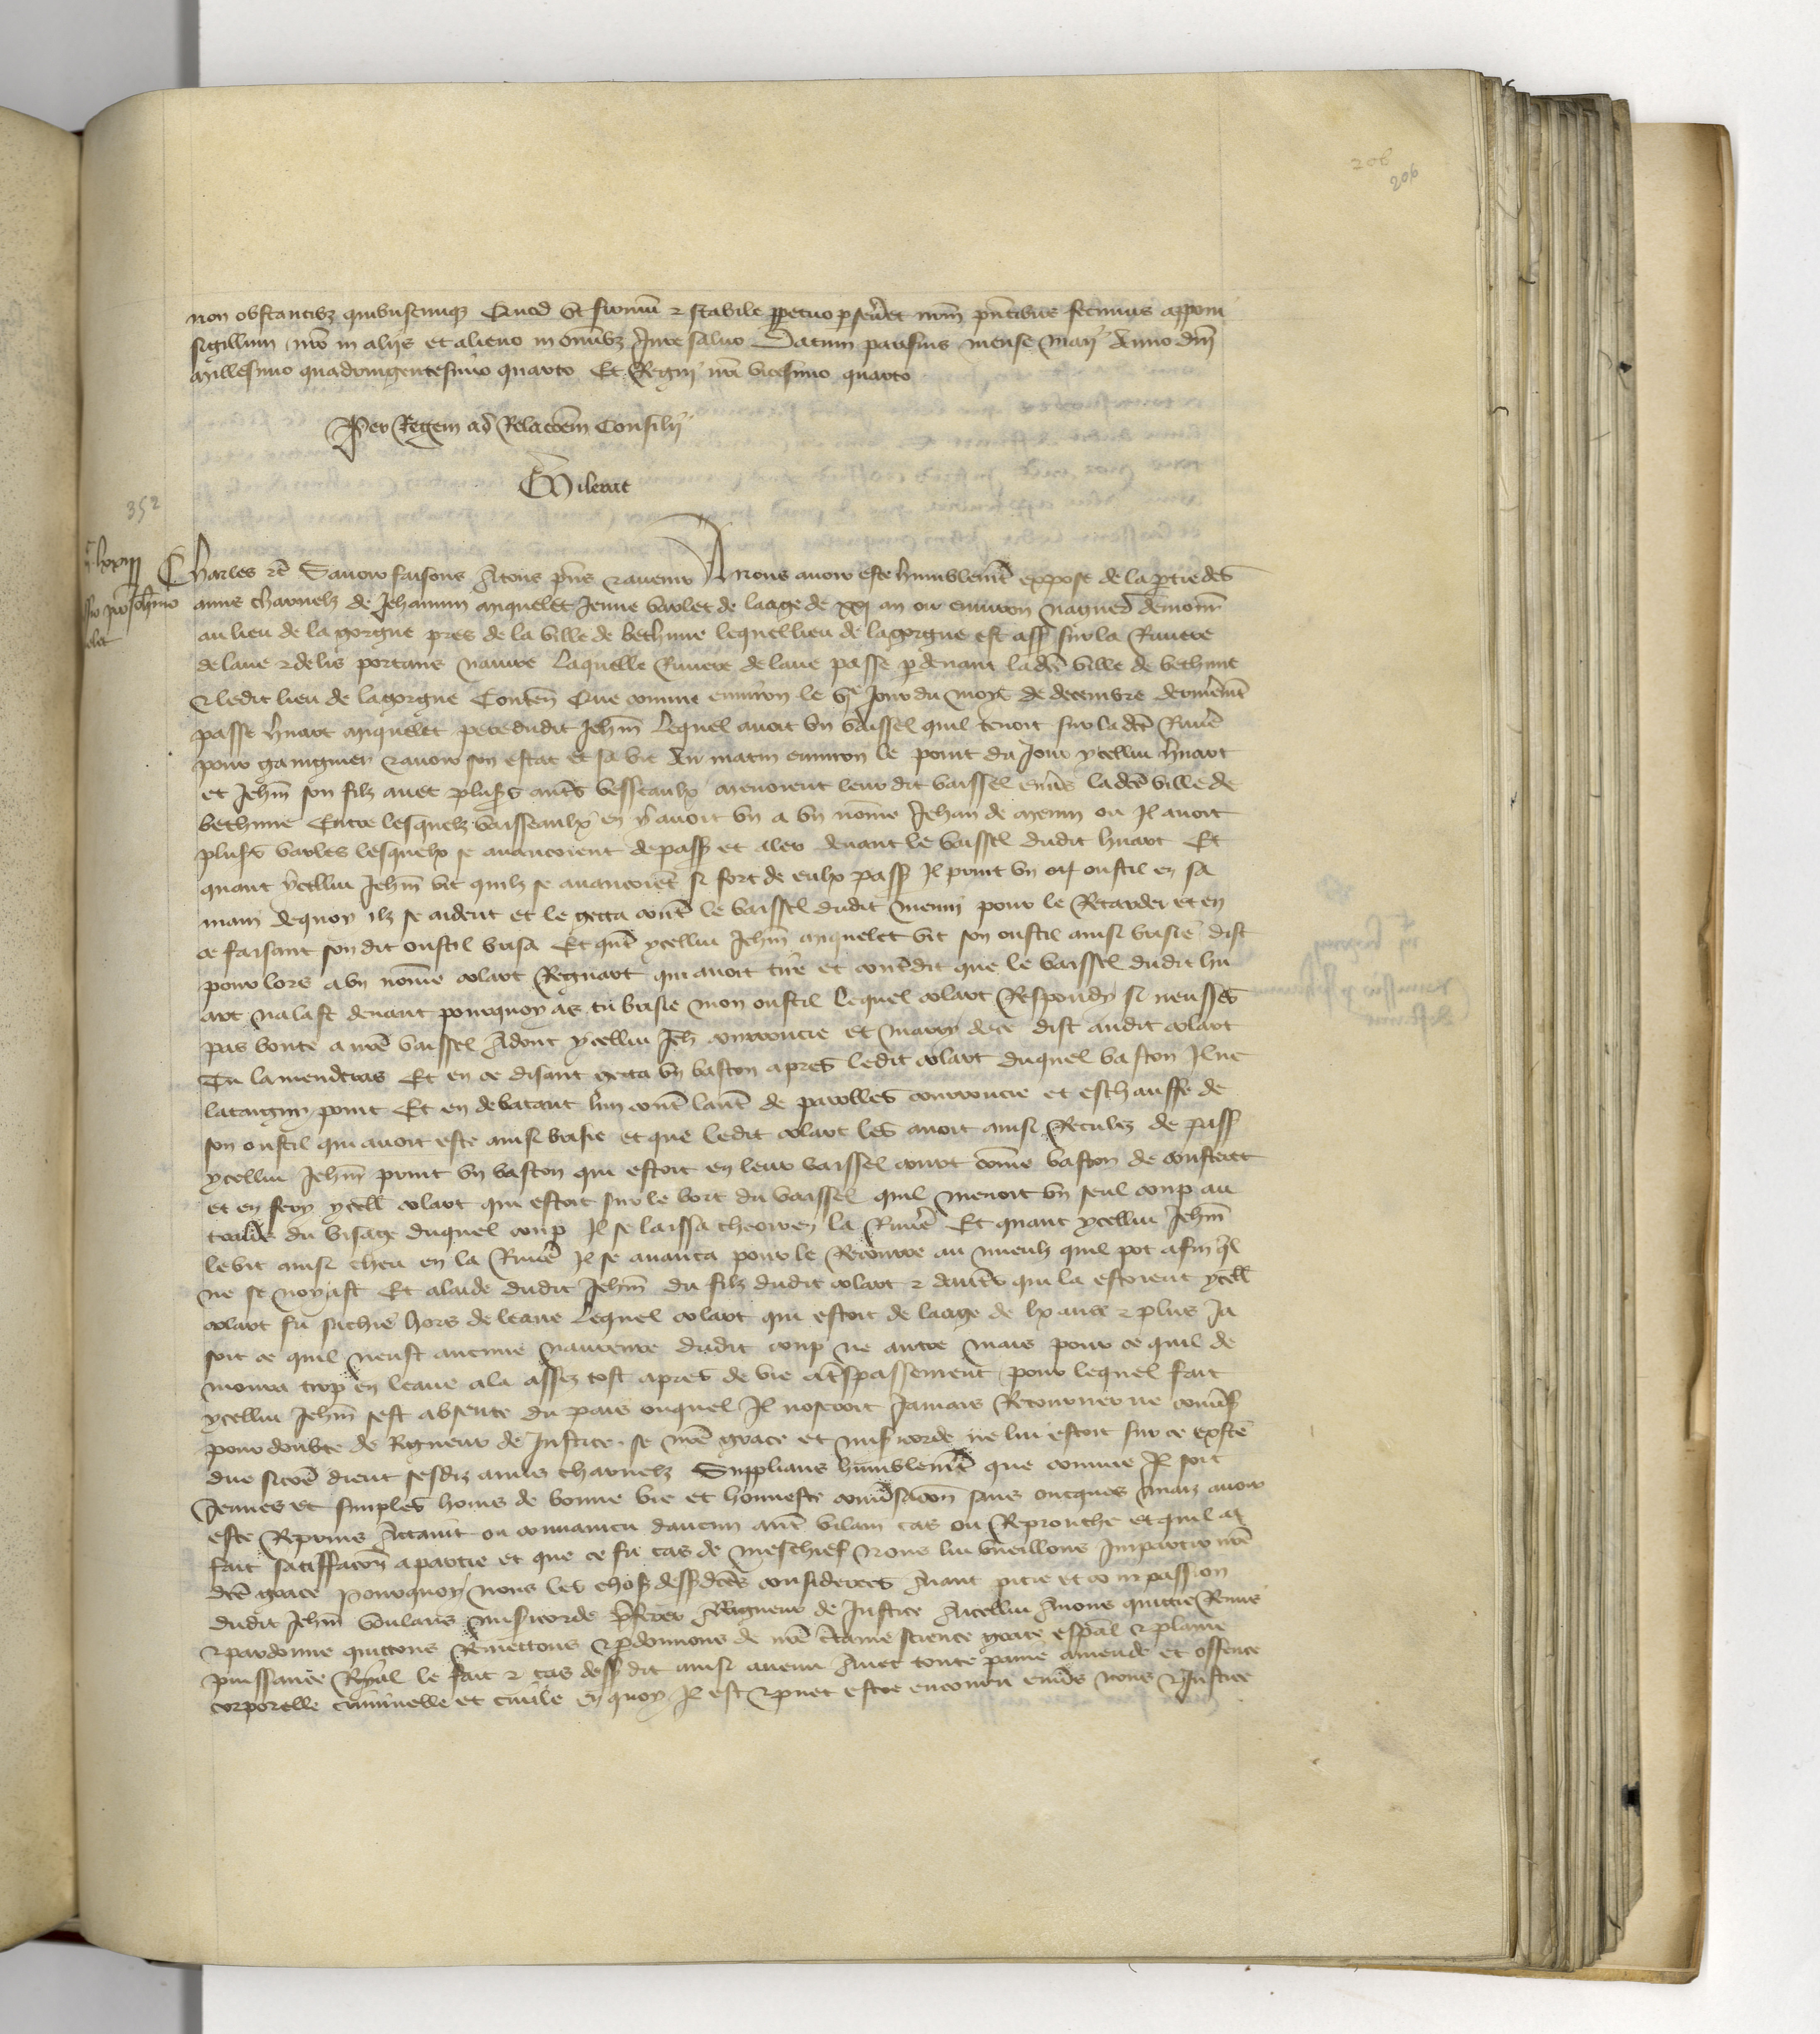 206
206
non obstantibz quibuscunqz Quod ut firmu & stabile ppetuo pseveret nrm pntibus fecimus apponi
sigillum nro in aliis et alieno in omnibz Jure salvo Datum parisius mense Maij Anno dni
Millesimo quadringentesimo quarto Et Regni nri vicesimo quarto
Per Regem ad Relacoem Consilij
Milerat
352
Charles etc Savoir faisons Atous pns & avenir A nous avoir este humblemt expose de la partie des
amis charnelz de Jehannin anquelet Jeune varlet de laage de xxj an ou environ naguer demour
au lieu de la gorgue pres de la ville de bethune lequel lieu de lagorgue est ass sur la Riviere
de lave & de lis portans navire Laquelle Riviere de lave passe p devant ladce ville de bethune
& ledit lieu de lagorgue Conten Que comme environ le ve Jour du moys de decembre derrnemt
passe huart anquelet pere dudit Jehn Lequel avoit un vaissel quil tenoit sur ladce Rivie
pour gaingnier & avoir son estat et sa vie Au matin environ le point du Jour ycellui huart
et Jehn son filz avec plus's auts vesseaulx menoient leur dit vaissel envs ladce ville de
bethune Entre lesquelz vaisseaulx en y avoit un a un nomme Jehan de menin ou Il avoit
plus's varles lesquelx se avancoient de pass et aler devant le vaissel dudit huart Et
quant ycellui Jehn vit quilz se avancoiet si fort de eulx pass Il print un oustil en sa
main dequoy ilz se aident et le getta cont le vaissel dudit menin pour le Retarder et en
ce faisant son dit oustil brisa Et qut ycellui Jehn anquelet vit son oustil ainsi brisie dist
pour lors a un nomme colart Regnart qui avoit tire et contendit que le vaissel dudit hu
art nalast devant pourquoy as tu brisie mon oustil Lequel colart Respondy si neusses
pas boute a nre vaissel Adont ycellui Jeh courroucie et marry de ce dist audit colart
Tu lamenderas Et en ce disant getta un baston apres ledit colart duquel baston Il ne
lataigni point Et en debatant lun cont laut de parolles courroucie et eschauffe de
son oustil qui avoit este ainsi brisie et que ledit colart les avoit ainsi Reculez de pass
ycellui Jehn print un baston qui estoit en leur vaissel court come baston de
et en fery ycell colart qui estoit sur le bort du vaissel quil menoit un seul coup au
du visage duquel coup Il se laissa cheoir en la Rivie Et quant ycellui Jehn
le vit ainsi cheu en la Rivie Il se avanca pour le Recourre au mieulz quil pot afin ql
ne se noyast Et alaide dudit Jehn du filz dudit colart & dauts qui la estoient ycell
colart fu sachie hors de leaue Lequel colart qui estoit de laage de lx ans & plus Ja
soit ce quil neust aucune navreure dudit coup ne autre mais pour ce quil de
moura trop en leaue ala assez tost apres de vie a tspassement pour lequel fait
ycellui Jehn sest absente du pais ouquel Il noseroit Jamais Retourner ne convs
pour doubte de Rigueur de Justice se nre grace et misicorde ne lui estoit sur ce exste
due sicoe dient sesdiz amis charnelz Supplians humblemt que comme Il soit
Jeunes et simples homs de bonne vie et honneste convsacon sans oncques mais avoir
este Reprins Attaint ou convaincu daucun aut vilain cas ou Reprouche et quil a
fait satisffacon a partie et que ce fu cas de meschief Nous lui vueillons Impartir nre
dce grace Pourquoy nous les chos dessdces considerees Aiant pitie et compassion
dudit Jehn voulans misicorde preferer A Rigueur de Justice Aicellui Avons quittie Remis
& pardonne quittons Remettons & pdonnons de nre ctaine science grace espal & plaine
puissance Royal le fait & cas dess dit ainsi avenu Avec toute paine amende et offence
corporelle criminelle et civile en quoy Il est & puet estre encouru envs nous & Justice